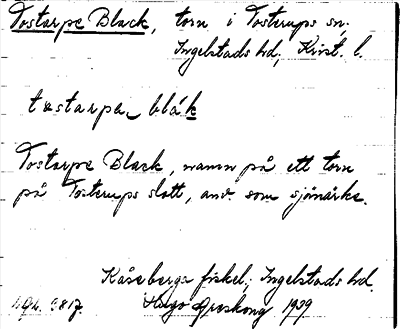 Tostarpe Black, torn i Tosterups sn;
Ingelstads hd, Krist. l.
tostarpe blák
Tostarpe Black, namn på ett torn
på Tosterups slott, anv. som sjömärke.
Kåseberga fiskel; Ingelstads hd.
Hugo Areskoug 1929